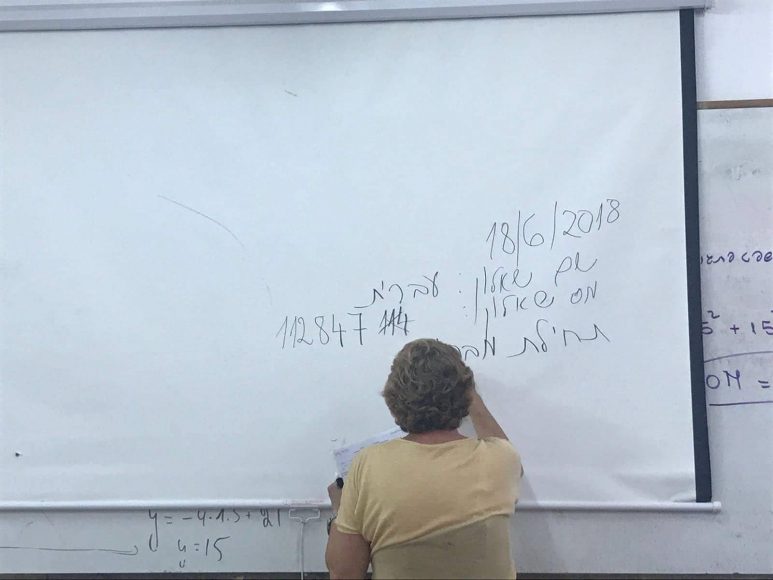 18/6/2018
שם שאלון: עברית
מס שאלון: 112847
תחילת מבח
5² + 15²
OM =
y = -4·1.5 + 21
y = 15